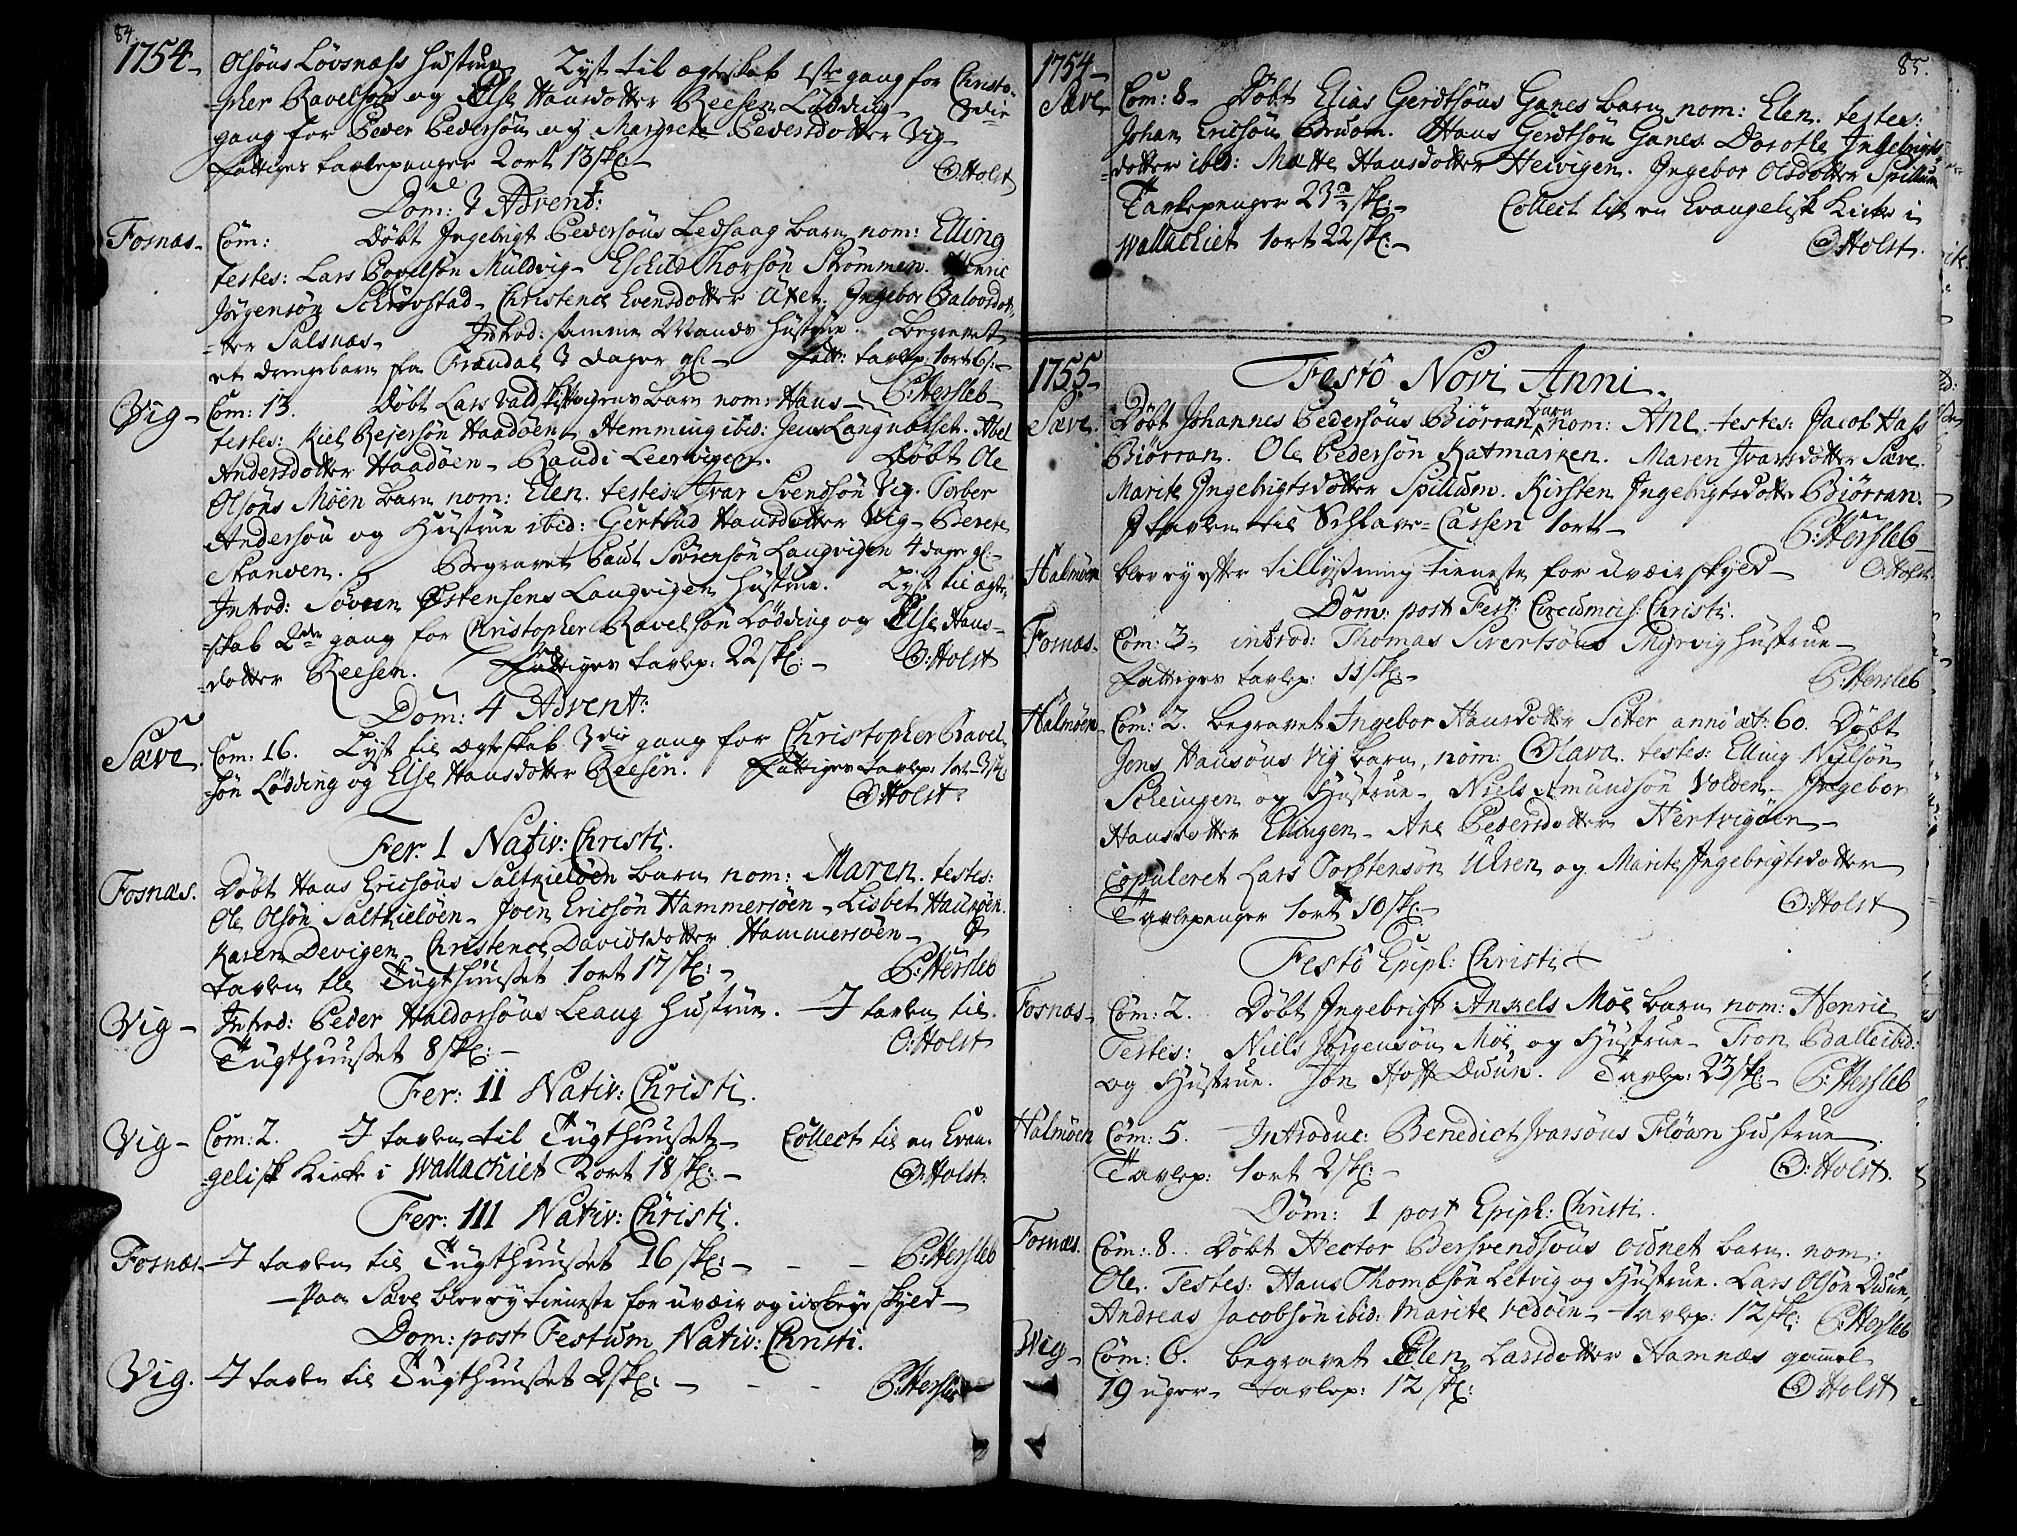 84.
1754-
Olsöns Lövsnæss Hustrue Lyst til ægteskab 1ste gang for Christo-
=pher Ravelsön og Else Hansdotter Reesen Lödding- 3die
gang for Peder Pedersön og Margrete Pedersdotter Vig-
Fattiges tavlepenger 2 ort 13 sk:- O:Holst
Dom: 3 Advent:
Fosnæs- Com: Döbt Ingebrigt Pedersöns Ledsaag barn nom: Elling
testes: Lars Povelsön Muldvig- Eschild Thorsön Strömmen. Henric
Jörgensön Schrövstad- Christence Evensdotter Öxet. Ingebor
=ter Salsnæs- Introd: samme Mands Hustrue. Begravet
et drengebarn fra Frændal 3 dager gl:- Fatt: tavlep: 1 ort 6 s:-
Vig- Com: 13. Döbt Lars barn nom: Hans- C:Hersleb-
testes: Kiel Rejersön Haadöen- Hemming ibid: Jens Langnæsset. Abel
Andersdotter Haadöen- Randi Leervigen. Döbt Ole
Olsöns Möen barn nom: Elen. testes: Ivar Svendsön Vig. Torber
Andersön og Hustrue ibid: Gertrud Hansdotter Vig- Berete
Skanven. Begravet Paul Sörensön Langvigen 4 dager gl:-
Introd: Sören Östensens Langvigen Hustrue. Lyst til ægte-
=skab 2den gang for Christopher Ravelsön Lödding og Else Hans-
=dotter Reesen. Fattiges tavlep: 22 sk:- O:Holst
Dom: 4 Advent:
Sæve. Com: 16. Lyst til ægteskab 3die gang for Christopher Ravel-
sön Lödding og Else Hansdotter Reesen. Fattiges tavlep: 1 ort
O:Holst.
Fer. I Nativ: Christi.
Fosnæs. Döbt Hans Ericsöns Saltkielöen barn nom: Maren. testes:
Ole Olsön Saltkielöen- Joen Ericsön Hammersöen- Lisbet
Karen Devigen- Christence Davidsdotter Hammersöen- I
tavlen til Tugthuuset 1 ort 17 sk:- C:Hersleb
Vig- Introd: Peder Haldorsöns Leang Hustrue. I tavlen til
Tugthuuset 8 sk:- O:Holst
Fer: II Nativ: Christi.
Vig- Com: 2. I tavlen til Tugthuuset- Collect til en Evan-
-gelisk Kirke i Wallachiet 2 ort 18 sk:- O:Holst.
Fer: III Nativ: Christi.
Fosnæs- I tavlen til Tugthuuset 16 sk:- - - C:Hersleb
-Paa Sæve blev ey tieneste for uvæir og skyld-
Dom: post Festum Nativ: Christi.
Vig. I tavlen til Tugthuuset 2 sk:- - - C:Hersleb
85.
1754-
Sæve Com: 8- Döbt Elias Gerdtsöns Ganes barn nom: Elen. testes:
Johan Ericsön Bruom. Hans Gerdtsön Ganes. Dorothe Ingebrigts-
=dotter ibid: Mætte Hansdotter Heivigen. Ingebor Olsdotter Spillum
Tavlepenger 23 sk:- Collect til en Evangelisk Kirke i
Wallachiet 1 ort 22 sk:- O:Holst.
1755-
Festo Novi Anni.
Sæve. Döbt Johannes Pedersöns Biörran barn nom: Ane. testes: Jacob Hass
Biörran. Ole Pedersön Katmarken. Maren Ivarsdotter Sæve.
Marite Ingebrigtsdotter Spillum. Kirsten Ingebrigtsdotter Biörran.
I tavlen til Schlave-Cassen 1 ort- C:Hersleb-
Halmöen blev ey efter tillysning tieneste for uvæir skyld- O:Holst.
Dom: post Fest: Circumcis: Christi.
Fosnæs. Com: 3. introd: Thomas Sivertsöns Thyrvig Hustrue-
Fattiges tavlep: 11 sk:- C:Hersleb
Halmöen. Com: 2. begravet Ingebor Hansdotter Seter anno æt: 60. Döbt
Jens Hansöns Vig barn, nom: Olava. testes: Elling Nielsön
Scheingen og Hustrue- Niels Amundsön Volden- Ingebor
Hansdotter Ellingen- Ane Pedersdotter Hertvigöen-
Copuleret Lars Torstensön Ulsen og Marite Ingebrigtsdotter
Tavlepenger 1 ort 10 sk:- O:Holst
Festo Epiph: Christi-
Fosnæs- Com: 2. Döbt Ingebrigt Anxels Möe barn nom: Henric
Testes: Niels Jörgensön Möe og Hustrue- Tron Balle ibid:
og Hustrue. Jon Hoff Duun. Tavlep: 23 sk:- C:Hersleb
Halmöen Com: 5. Introduc: Benedict Ivarsöns Flöan Hustrue
Tavlep: 1 ort 2 sk:- O:Holst.
Dom: 1 post Epiph: Christi.
Fosnæs. Com: 8. Döbt Hector Bersvendsöns Oidnet barn. nom:
Ole. Testes: Hans Thomæsön Letvig og Hustrue. Lars Olsön Duun.
Andreas Jacobsön ibid: Marite Vedöen- tavlep: 12 sk: C:Hersleb
Vig- Com: 6. begravet Elen Larsdotter Hamnæs gammel
19 uger- tavlep: 12 sk: O:Holst